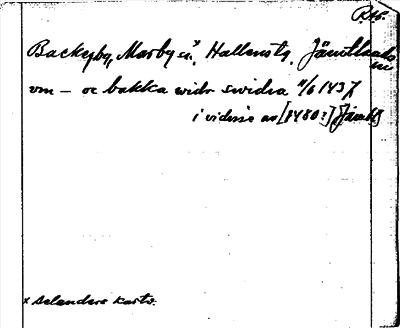 RAp.
Backeby, Marby sn.ˣ Hallens tg. Jämtlands
län
vm – oc bakka widr swidia 11/6 1437
i vidisse av [1480?] Jämtl
x Selanders karta.